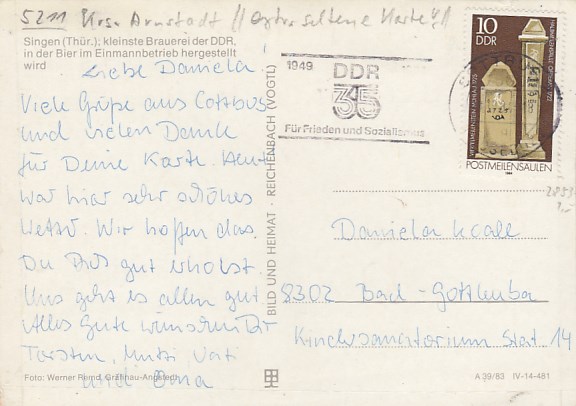 5211 Krs. Arnstadt // extra seltene Karte!//
Singen (Thür.); kleinste Brauerei der DDR,
in der Bier im Einmannbetrieb hergestellt
wird
Liebe Daniela
Viele Grüße aus Cottbus
und vielen Dank
für Deine Karte. Heut
war hier sehr schönes
Wetter. Wir hoffen das
Du Dich gut erholst.
Uns geht es allen gut.
Alles Gute wünschen Dir
Torsten, Mutti Vati
und Oma
Foto: Werner Reind, Gräfinau-Angstedt
BILD UND HEIMAT · REICHENBACH (VOGTL)
1949 DDR
35
Für Frieden und Sozialismus
10
DDR
POSTMEILENSÄULEN
1984
Daniela
8302 Bad-Gottleuba
Kindersanatorium Stat. 14
A 39/83 IV-14-481